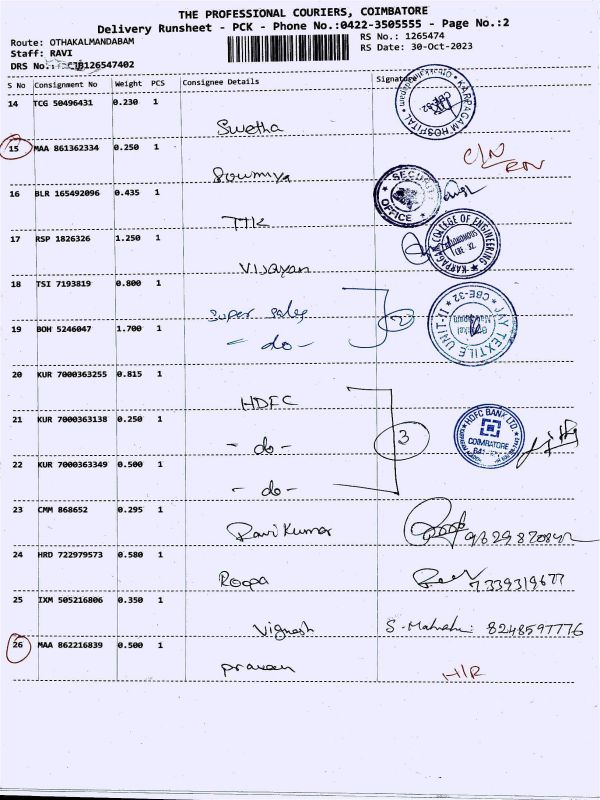 THE PROFESSIONAL COURIERS, COIMBATORE
Delivery Runsheet - PCK - Phone No.:0422-3505555 - Page No.:2
Route: OTHAKALMANDABAM
RS No.: 1265474
Staff: RAVI
RS Date: 30-Oct-2023
DRS No.: 126547402
S No Consignment No Weight PCS Consignee Details Signature
14 TCG 50496431 0.230 1
Swetha
KARPAGAM HOSPITAL
15 MAA 861362334 0.250 1
Soumiya
C/N
RN
16 BLR 165492096 0.435 1
TTK
SECURITY OFFICE
17 RSP 1826326 1.250 1
Vijayan
KARPAGAM COLLEGE OF ENGINEERING
(AUTONOMOUS)
18 TSI 7193819 0.800 1
Super Sales
2
JAY TEXTILE UNIT-II
CBE-32
19 BOH 5246047 1.700 1
- do -
20 KUR 7000363255 0.815 1
HDFC
21 KUR 7000363138 0.250 1
- do -
3
HDFC BANK LTD.
COIMBATORE
22 KUR 7000363349 0.500 1
- do -
23 CMM 868652 0.295 1
Ravi Kumar
24 HRD 722979573 0.580 1
Roopa
7339319677
25 IXM 505216806 0.350 1
Vignesh
8248597776
26 MAA 862216839 0.500 1
Praveen
H/R